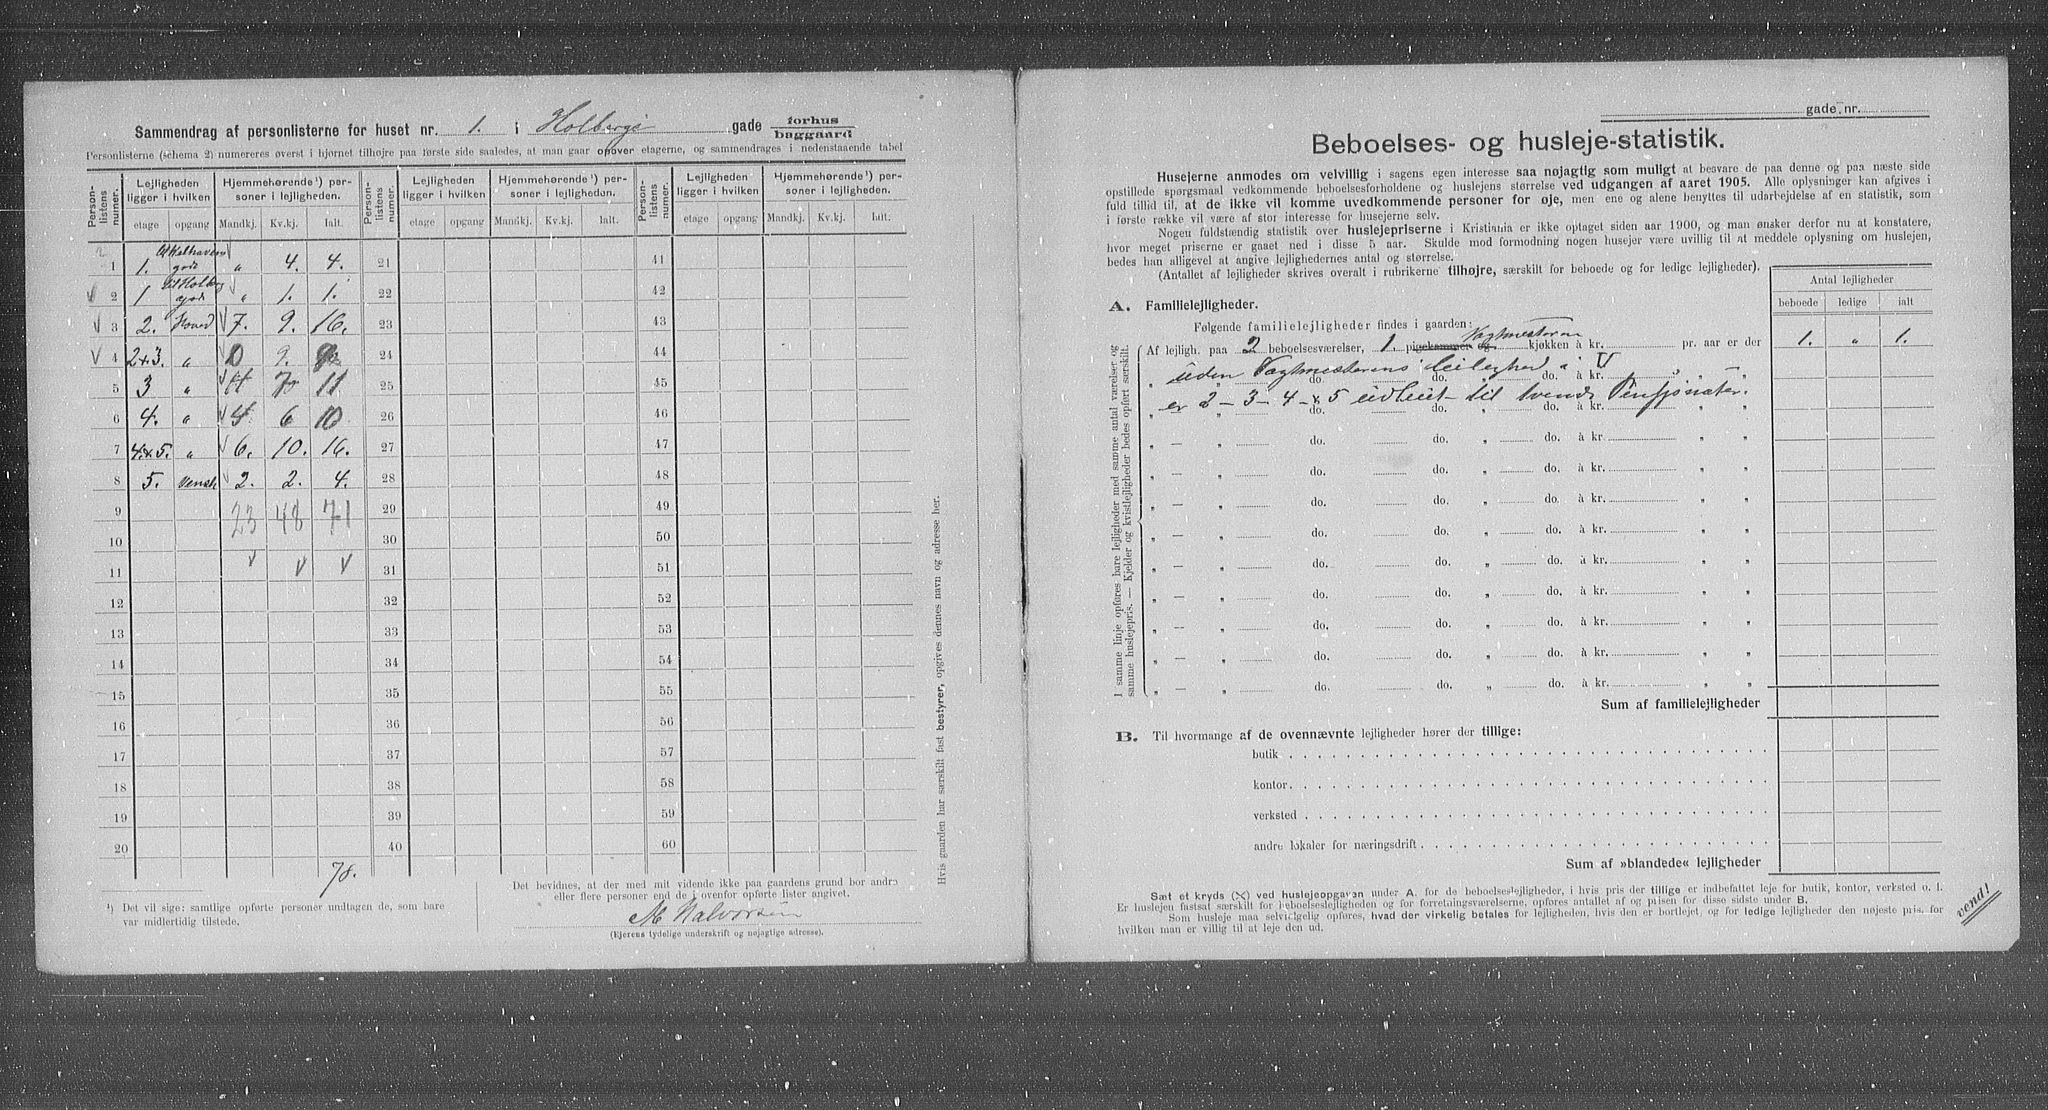 Sammendrag af personlisterne for huset nr. 1. i Holbergs gade forhus
baggaard
Personlisterne (schema 2) numereres øverst i hjørnet tilhøjre paa første side saaledes, at man gaar opover etagerne, og sammendrages i nedenstaaende tabel
Person-listens nummer. Lejligheden ligger i hvilken Hjemmehørende ¹) personer i lejligheden. Person-listens nummer. Lejligheden ligger i hvilken Hjemmehørende ¹) personer i lejligheden. Person-listens nummer. Lejligheden ligger i hvilken Hjemmehørende ¹) personer i lejligheden.
etage opgang Mandkj. Kv.kj. Ialt. etage opgang Mandkj. Kv.kj. Ialt. etage opgang Mandkj. Kv.kj. Ialt.
1 1. gade „ 4. 4. 21 41
2 1 til Holberg gade „ 1. 1. 22 42
3 2. Hoved 7. 9. 16. 23 43
4 2+3. „ 0 9. 24 44
5 3 „ 4 7 11 25 45
6 4. „ 4 6 10 26 46
7 4+5. „ 6. 10. 16. 27 47
8 5. 2. 2. 4. 28 48
9 23 48 71 29 49
10 30 50
11 31 51
12 32 52
13 33 53
14 34 54
15 35 55
16 36 56
17 37 57
18 38 58
19 39 59
20 40 60
78.
¹) Det vil sige: samtlige opførte personer undtagen de, som bare
var midlertidig tilstede.
Det bevidnes, at der med mit vidende ikke paa gaardens grund bor andre
eller flere personer end de i ovenfor opførte lister angivet.
M Halvorsen
(Ejerens tydelige underskrift og nøjagtige adresse).
Hvis gaarden har særskilt fast bestyrer, opgives dennes navn og adresse her.
gade nr.
Beboelses- og husleje-statistik.
Husejerne anmodes om velvillig i sagens egen interesse saa nøjagtig som muligt at besvare de paa denne og paa næste side
opstillede spørgsmaal vedkommende beboelsesforholdene og huslejens størrelse ved udgangen af aaret 1905. Alle oplysninger kan afgives i
fuld tillid til, at de ikke vil komme uvedkommende personer for øje, men ene og alene benyttes til udarbejdelse af en statistik, som
i første række vil være af stor interesse for husejerne selv.
Nogen fuldstændig statistik over huslejepriserne i Kristiania er ikke optaget siden aar 1900, og man ønsker derfor nu at konstatere,
hvor meget priserne er gaaet ned i disse 5 aar. Skulde mod formodning nogen husejer være uvillig til at meddele oplysning om huslejen,
bedes han alligevel at angive lejlighedernes antal og størrelse.
(Antallet af lejligheder skrives overalt i rubrikerne tilhøjre, særskilt for beboede og for ledige lejligheder).
Antal lejligheder
beboede ledige ialt
A. Familielejligheder.
Følgende familielejligheder findes i gaarden:
Vagtmesteren
Af lejligh. paa 2 beboelsesværelser, 1. pigekammer og kjøkken à kr. pr. aar er der 1. „ 1.
uden Vagtmesterens leilighed i V
er 2 - 3 - 4 + 5 udleiet til tvende Pensjonater.
„ — „ do. do. „ do. à kr. „ „
„ — „ do. do. „ do. à kr. „ „
„ — „ do. do. „ do. à kr. „ „
„ — „ do. do. „ do. à kr. „ „
„ — „ do. do. „ do. à kr. „ „
„ — „ do. do. „ do. à kr. „ „
„ — „ do. do. „ do. à kr. „ „
„ — „ do. do. „ do. à kr. „ „
„ — „ do. do. „ do. à kr. „ „
I samme linje opføres bare lejligheder med samme antal værelser og
samme huslejepris. — Kjelder og kvistlejligheder bedes opført særskilt.
Sum af familielejligheder
B. Til hvormange af de ovennævnte lejligheder hører der tillige:
butik
kontor
verksted
andre lokaler for næringsdrift
Sum af »blandede« lejligheder
Sæt et kryds (×) ved huslejeopgaven under A. for de beboelseslejligheder, i hvis pris der tillige er indbefattet leje for butik, kontor, verksted o. l.
Er huslejen fastsat særskilt for beboelseslejligheden og for forretningsværelserne, opføres antallet af og prisen for disse sidste under B.
Som husleje maa selvfølgelig opføres, hvad der virkelig betales for lejligheden, hvis den er bortlejet, og for ledige lejligheder den nøjeste pris, for
hvilken man er villig til at leje den ud.
vend!